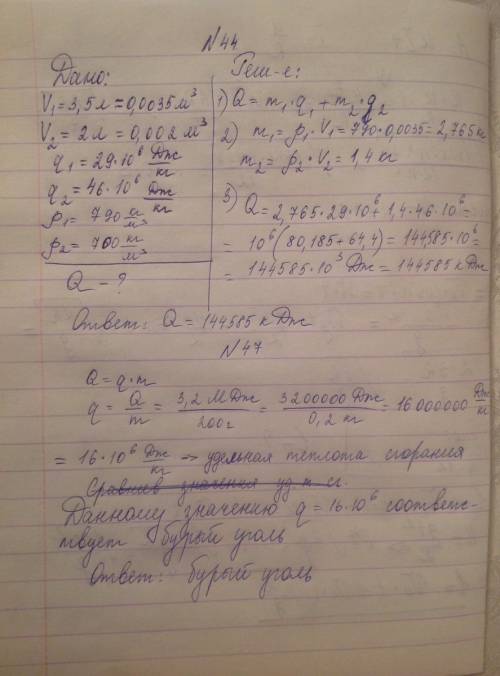 N 44
Дано:
V₁ = 3,5 л = 0,0035 м³
V₂ = 2 л = 0,002 м³
q₁ = 29·10⁶ Дж/кг
q₂ = 46·10⁶ Дж/кг
ρ₁ = 790 кг/м³
ρ₂ = 700 кг/м³
Q - ?
Реш-е:
1) Q = m₁·q₁ + m₂·q₂
2) m₁ = ρ₁·V₁ = 790·0,0035 = 2,765 кг
m₂ = ρ₂·V₂ = 1,4 кг
3) Q = 2,765·29·10⁶ + 1,4·46·10⁶ =
= 10⁶(80,185 + 64,4) = 144585·10⁶ =
= 144585·10³ Дж = 144585 кДж
Ответ: Q = 144585 кДж
N 47
Q = q·m
q = Q/m = 3,2 МДж/200г = 3200000 Дж/0,2 кг = 16000000 Дж/кг
= 16·10⁶ Дж/кг -> удельная теплота сгорания
Сравнив значения уд. т. сг.
Данному значению q = 16·10⁶ соответс-
твует бурый уголь
Ответ: бурый уголь